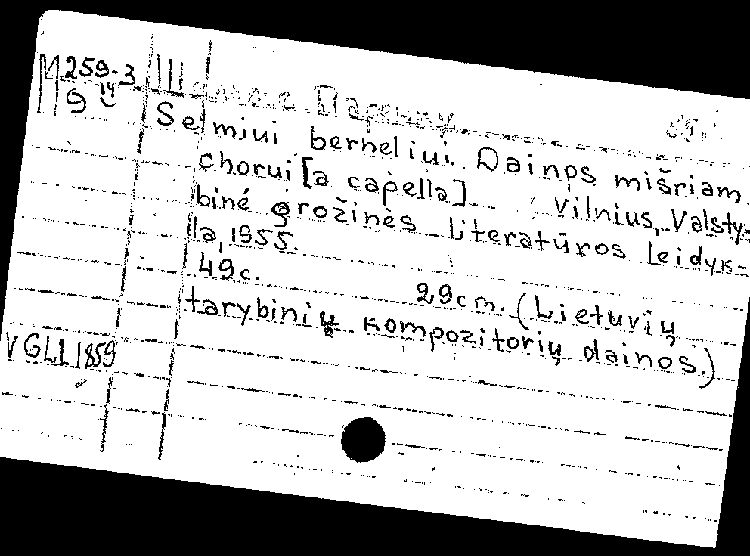 M 259-3
9 14
Šeimiui berneliui. Dainos mišriam
chorui [a capella] Vilnius, Valsty-
binė grožinės literatūros leidyk-
la, 1955.
49c. 29cm. (Lietuvių
tarybinių kompozitorių dainos.)
VGLL 1859